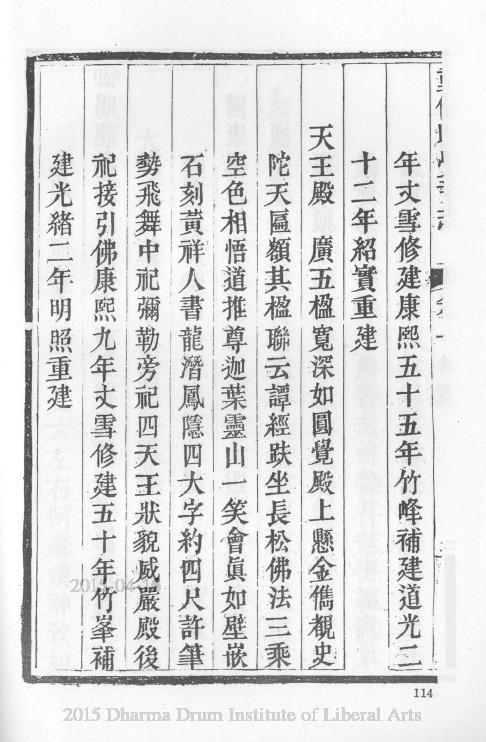 年丈雪修建康熙五十五年竹峰補建道光二
十二年紹實重建
天王殿　廣五楹寬深如圓覺殿上懸金儁覩史
陀天匾額其楹聯云譚經趺坐長松佛法三乘
空色相悟道推尊迦葉靈山一笑會眞如壁嵌
石刻黃祥人書龍潛鳳隱四大字約四尺許筆
勢飛舞中祀彌勒旁祀四天王狀貌威嚴殿後
祀接引佛康熙九年丈雪修建五十年竹峯補
建光緒二年明照重建
114
2015 Dharma Drum Institute of Liberal Arts